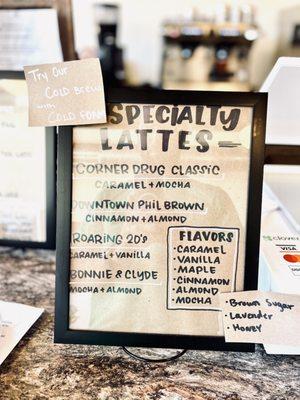 Try Our
Cold Brew
with
Cold Foam
Specialty
Lattes
Corner Drug Classic
Caramel + Mocha
Downtown Phil Brown
Cinnamon + Almond
Roaring 20's
Caramel + Vanilla
Bonnie & Clyde
Mocha + Almond
Flavors
• Caramel
• Vanilla
• Maple
• Cinnamon
• Almond
• Mocha
• Brown Sugar
• Lavender
• Honey
clover
VISA